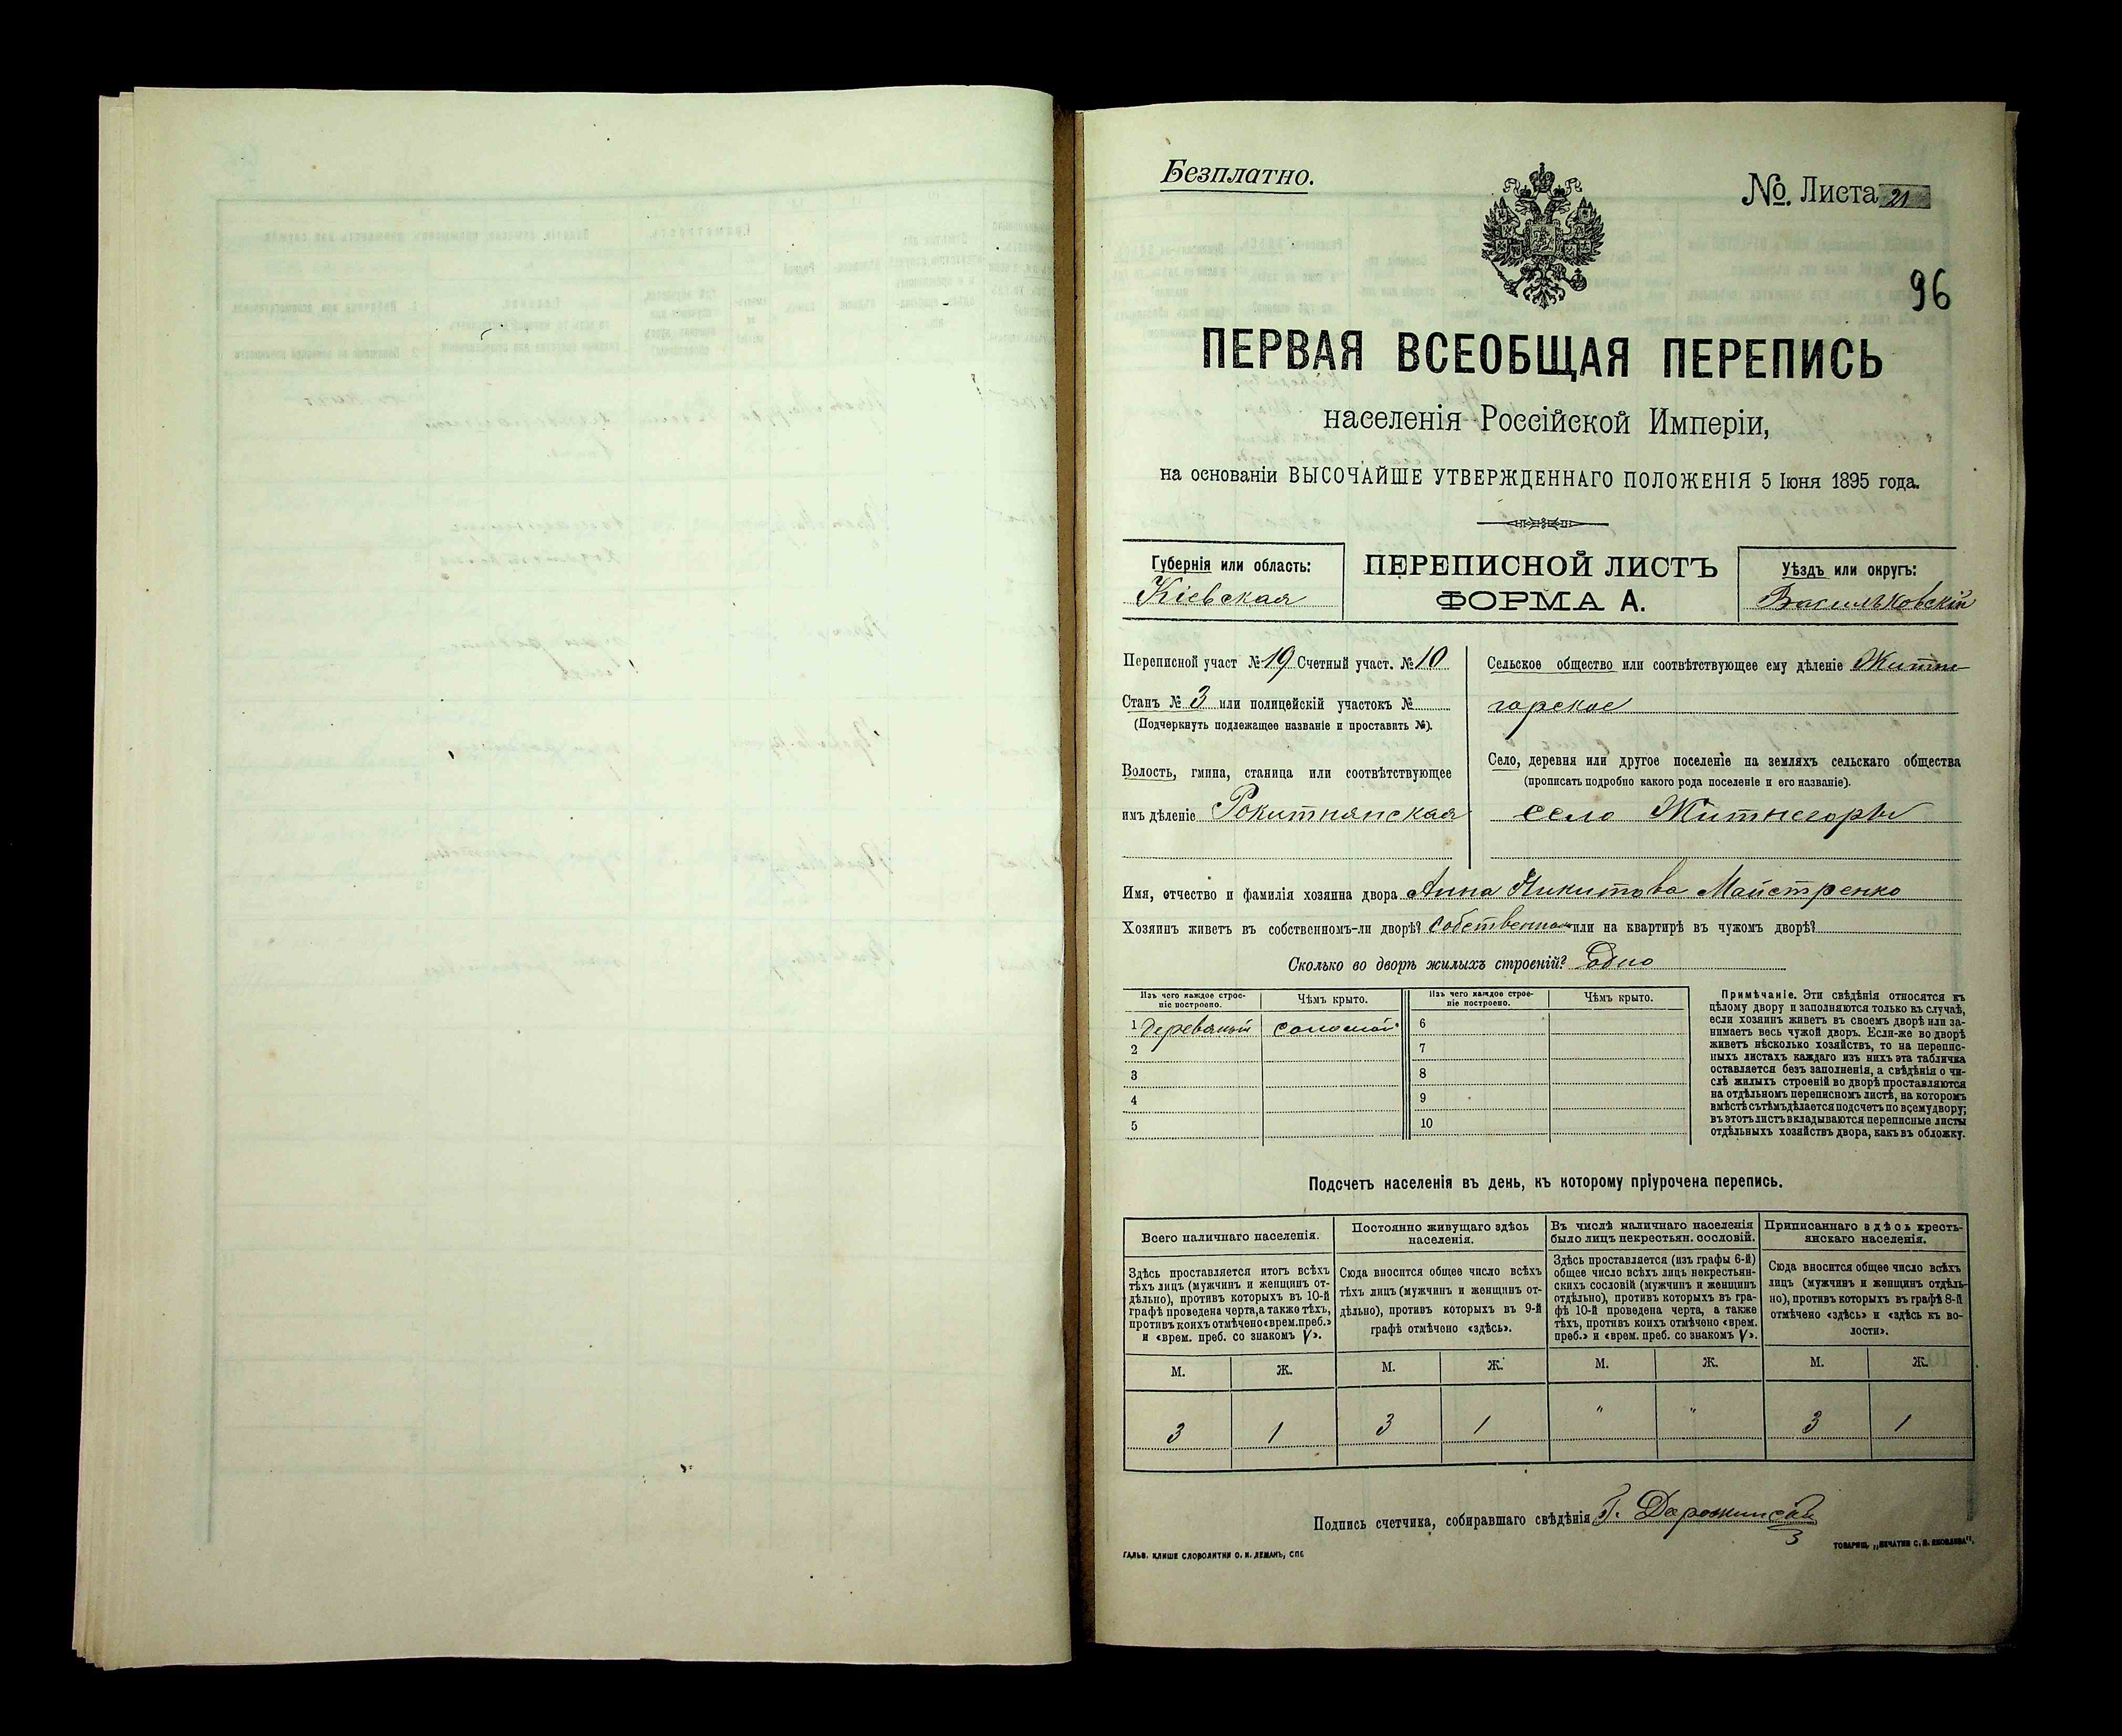 Безплатно.
№. Листа 21
96
ПЕРВАЯ ВСЕОБЩАЯ ПЕРЕПИСЬ
населенія Россійской Имперіи,
на основаніи ВЫСОЧАЙШЕ УТВЕРЖДЕННАГО ПОЛОЖЕНІЯ 5 Іюня 1895 года.
Губернія или область:
Кіевская
ПЕРЕПИСНОЙ ЛИСТЪ
ФОРМА А.
Уѣздъ или округъ:
Васильковскій
Переписной участ №19 Счетный участ. №10
Станъ № 3 или полицейскій участокъ №
(Подчеркнуть подлежащее названіе и проставить №).
Волость, гмина, станица или соотвѣтствующее
имъ дѣленіе Рокитнянская
Сельское общество или соотвѣтствующее ему дѣленіе Житне-
горское
Село, деревня или другое поселеніе на земляхъ сельскаго общества
(прописать подробно какого рода поселеніе и его названіе).
село Житнегоры
Имя, отчество и фамилія хозяина двора Анна Никитова Майстренко
Хозяинъ живетъ въ собственномъ-ли дворѣ? собственномъ или на квартирѣ въ чужомъ дворѣ?
Сколько во дворѣ жилыхъ строеній? Одно
Изъ чего каждое строе-
ніе построено.
Чѣмъ крыто.
Изъ чего каждое строе-
ніе построено.
Чѣмъ крыто.
1 Деревяный соломой 6
2 7
3 8
4 9
5 10
Примѣчаніе. Эти свѣдѣнія относятся къ
цѣлому двору и заполняются только въ случаѣ,
если хозяинъ живетъ въ своемъ дворѣ или за-
нимаетъ весь чужой дворъ. Если-же во дворѣ
живетъ нѣсколько хозяйствъ, то на перепис-
ныхъ листахъ каждаго изъ нихъ эта табличка
оставляется безъ заполненія, а свѣдѣнія о чи-
слѣ жилыхъ строеній во дворѣ проставляются
на отдѣльномъ переписномъ листѣ, на которомъ
вмѣстѣ съ тѣмъ дѣлается подсчетъ по всему двору;
въ этотъ листъ вкладываются переписные листы
отдѣльныхъ хозяйствъ двора, какъ въ обложку.
Подсчетъ населенія въ день, къ которому пріурочена перепись.
Всего наличнаго населенія.
Здѣсь проставляется итогъ всѣхъ
тѣхъ лицъ (мужчинъ и женщинъ от-
дѣльно), противъ которыхъ въ 10-й
графѣ проведена черта, а также тѣхъ,
противъ коихъ отмѣчено «врем. преб.»
и «врем. преб. со знакомъ V».
Постоянно живущаго здѣсь
населенія.
Сюда вносится общее число всѣхъ
тѣхъ лицъ (мужчинъ и женщинъ от-
дѣльно), противъ которыхъ въ 9-й
графѣ отмѣчено «здѣсь».
Въ числѣ наличнаго населенія
было лицъ некрестьян. сословій.
Здѣсь проставляется (изъ графы 6-й)
общее число всѣхъ лицъ некрестьян-
скихъ сословій (мужчинъ и женщинъ
отдѣльно), противъ которыхъ въ гра-
фѣ 10-й проведена черта, а также
тѣхъ, противъ коихъ отмѣчено «врем.
преб.» и «врем. преб. со знакомъ V».
Приписаннаго здѣсь кресть-
янскаго населенія.
Сюда вносится общее число всѣхъ
лицъ (мужчинъ и женщинъ отдѣль-
но), противъ которыхъ въ графѣ 8-й
отмѣчено «здѣсь» и «здѣсь къ во-
лости».
М. Ж. М. Ж. М. Ж. М. Ж.
3 1 3 1 " " 3 1
Подпись счетчика, собиравшаго свѣдѣнія
ГАЛЬВ. КЛИШЕ СЛОВОЛИТНИ О. И. ЛЕМАНЪ, СПБ.
ТОВАРИЩ. „ПЕЧАТНИ С. П. ЯКОВЛЕВА".